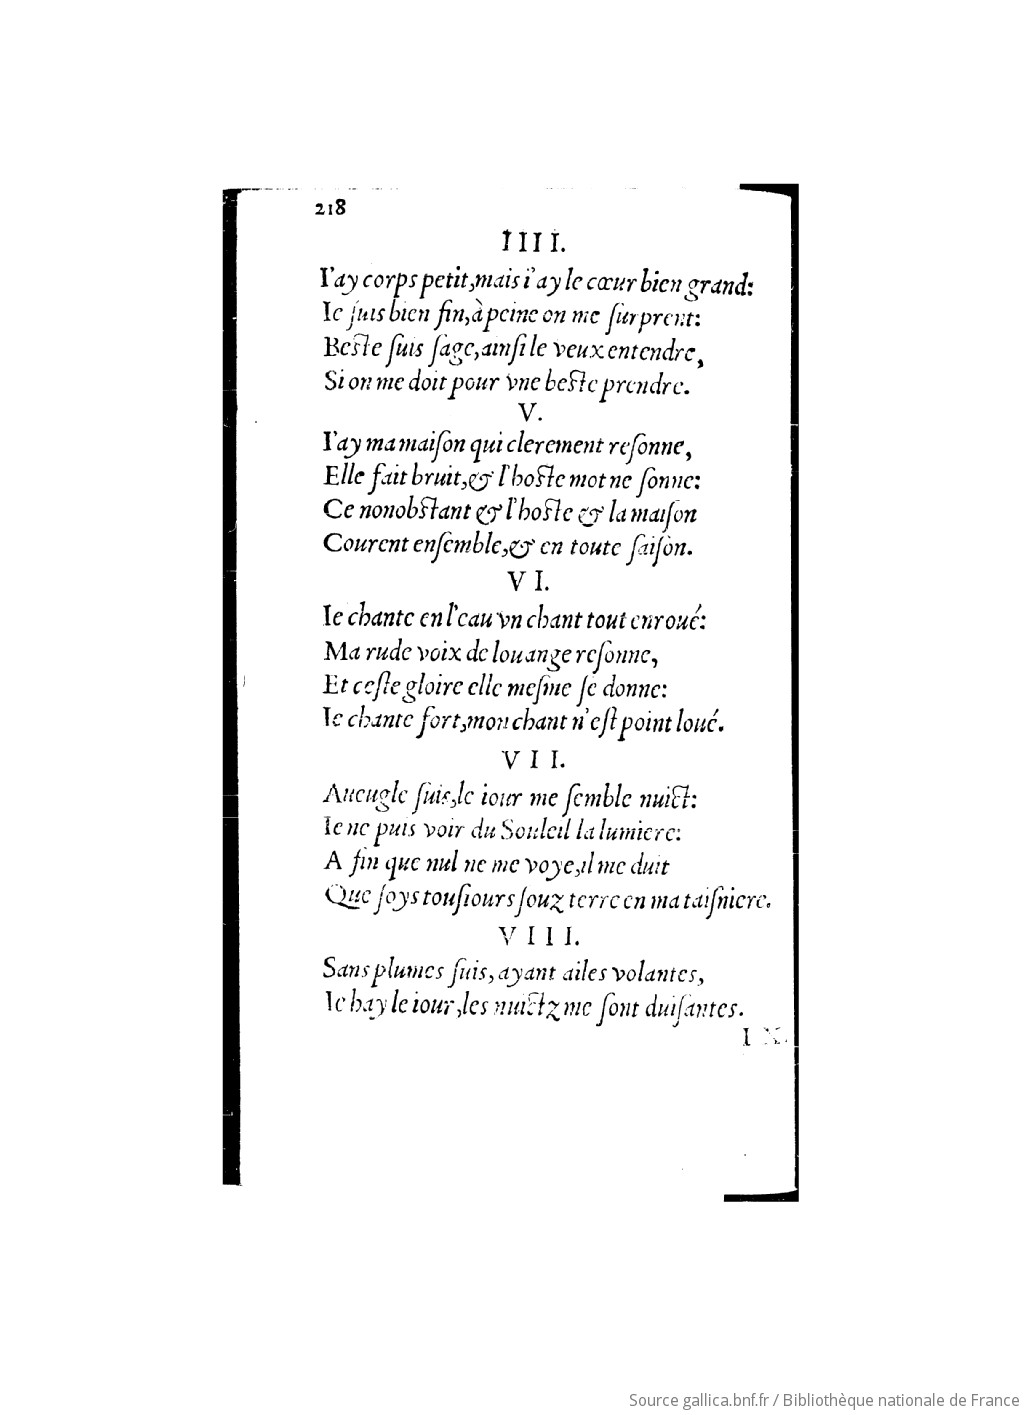 218
IIII.
I'ay corps petit, mais i'ay le cœur bien grand:
Ie ſuis bien fin, à peine on me ſurprent:
Beſte ſuis ſage, ainſi le veux entendre,
Si on me doit pour vne beſte prendre.
V.
I'ay ma maiſon qui clerement reſonne,
Elle fait bruit, & l'hoſte mot ne ſonne:
Ce nonobſtant & l'hoſte & la maiſon
Courent enſemble, & en toute ſaiſon.
VI.
Ie chante en l'eau vn chant tout enroué:
Ma rude voix de louange reſonne,
Et ceſte gloire elle meſme ſe donne:
Ie chante fort, mon chant n'eſt point loué.
VII.
Aueugle ſuis, le iour me ſemble nuict:
Ie ne puis voir du Souleil la lumiere:
A fin que nul ne me voye, il me duit
Que ſoys touſiours ſouz terre en ma taiſniere.
VIII.
Sans plumes ſuis, ayant ailes volantes,
Ie hay le iour, les nuictz me ſont duiſantes.
IX.
Source gallica.bnf.fr / Bibliothèque nationale de France